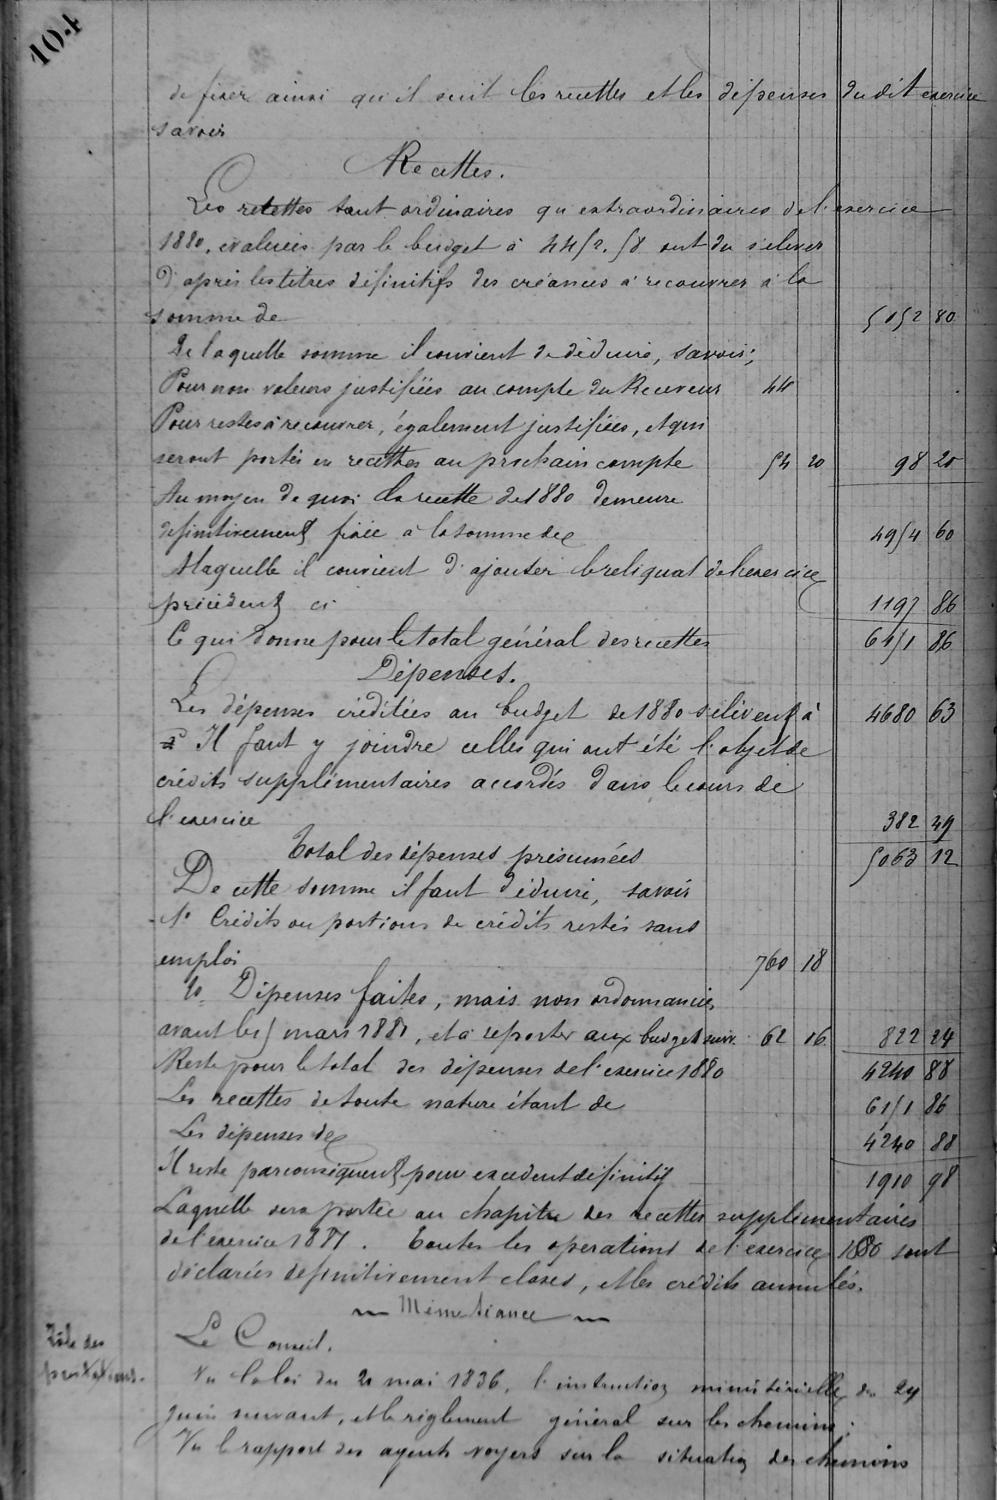 104
de fixer ainsi qu'il suit les recettes et les dépenses du dit exercice
savoir
Recettes.
Les recettes tant ordinaires qu'extraordinaires de l'exercice
1880, evaluées par le budget à 4452.58 ont du s'elever
d'après les titres définitifs des créances à recouvrer à la
somme de 5152 80
De laquelle somme il convient de déduire, savoir;
Pour non valeurs justifiées au compte du Receveur 44
Pour restes à recouvrer, également justifiées, et qui
seront portés en recettes au prochain compte 54 20 98 20
Au moyen de quoi la recette de 1880 demeure
definitivement fixée à la somme de 4954 60
A laquelle il convient d'ajouter le reliquat de l'exercice
précédent ci 1197 86
Ce qui donne pour le total général des recettes 6151 86
Dépenses.
Les dépenses créditées au budget de 1880 s'élèvent à 4680 63
Il faut y joindre celles qui ont été l'objet de
crédits supplémentaires accordés dans le cours de
l'exercice 382 49
Total des dépenses présumées 5063 12
De cette somme il faut déduire, savoir
1º Crédits ou portions de crédits restés sans
emploi 760 18
2º Dépenses faites, mais non ordonnancées
avant le 15 mars 1881, et à reporter aux budget suiv. 62 06 822 24
Reste pour le total des dépenses de l'exercice 1880 4240 88
Les recettes de toute nature étant de 6151 86
Les dépenses de 4240 88
Il reste par conséquent pour excedent définitif 1910 98
Laquelle sera portée au chapitre des recettes supplémentaires
de l'exercice 1881. Toutes les operations de l'exercice 1880 sont
déclarées definitivement closes, et les crédits annulés.
Même séance
Rôle des
prestations.
Le Conseil.
Vu la loi du 21 mai 1836, l'instruction ministérielle du 24
juin suivant, et le règlement général sur les chemins;
Vu le rapport des agents voyers sur la situation des chemins